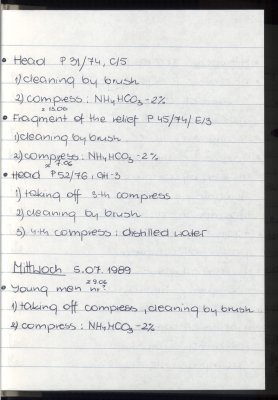 • Head P 31/74, C/5
1) cleaning by brush
2) compress: NH4HCO3 - 2%
• Fragment of the relief P 45/74/ E/3
1) cleaning by brush
2) compress: NH4HCO3 - 2%
• Head P 52/76, GH-3
1) taking off 3-th compress
2) cleaning by brush
3) 4-th compress: distilled water
Mittwoch 5.07.1989
• Young man nr.
1) taking off compress, cleaning by brush
2) compress: NH4HCO3 - 2%